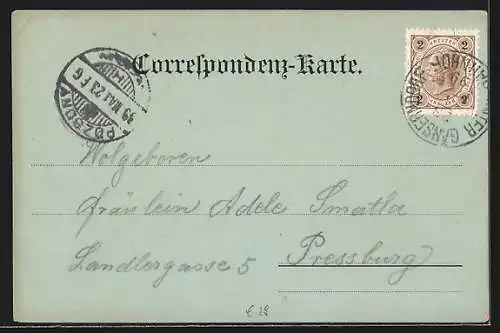 Correspondenz-Karte.
2 2
POZSONY
99 MAJ 23 F6
GÄNSERNDORF
Wolgeboren
fräulein Adele Smatla
Landlergasse 5
Pressburg
€ 28